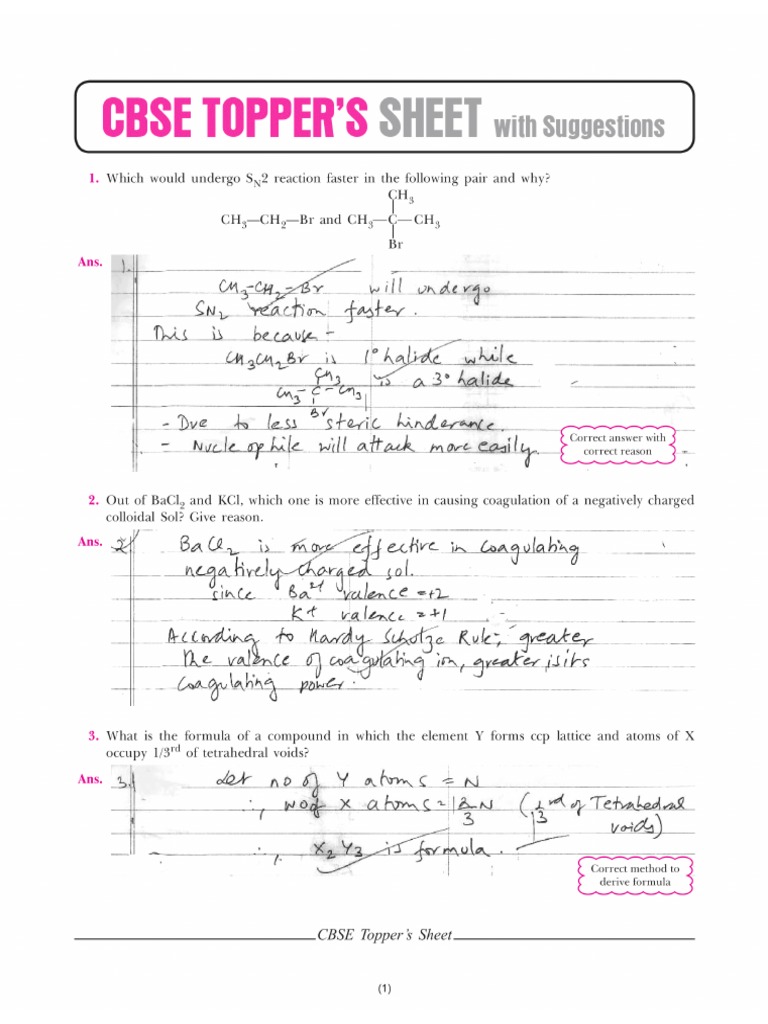 CBSE TOPPER'S SHEET with Suggestions
1. Which would undergo SN2 reaction faster in the following pair and why?
CH3
CH3—CH2—Br and CH3—C—CH3
Br
Ans. 1.
CH3-CH2-Br will undergo
SN2 reaction faster.
This is because -
CH3CH2Br is 1° halide while
CH3
CH3-C-CH3 is a 3° halide
Br
- Due to less steric hinderance.
- Nucleophile will attack more easily.
Correct answer with
correct reason
2. Out of BaCl2 and KCl, which one is more effective in causing coagulation of a negatively charged
colloidal Sol? Give reason.
Ans. 2. BaCl2 is more effective in coagulating
negatively charged sol.
since Ba2+ valence = +2
K+ valence = +1
According to Hardy Schulze Rule, greater
the valence of coagulating ion, greater is its
coagulating power.
3. What is the formula of a compound in which the element Y forms ccp lattice and atoms of X
occupy 1/3rd of tetrahedral voids?
Ans. 3. Let no of Y atoms = N
∴, no of X atoms = 2/3 N (1/3 rd of Tetrahedral
voids)
∴, X2Y3 is formula.
Correct method to
derive formula
CBSE Topper's Sheet
(1)